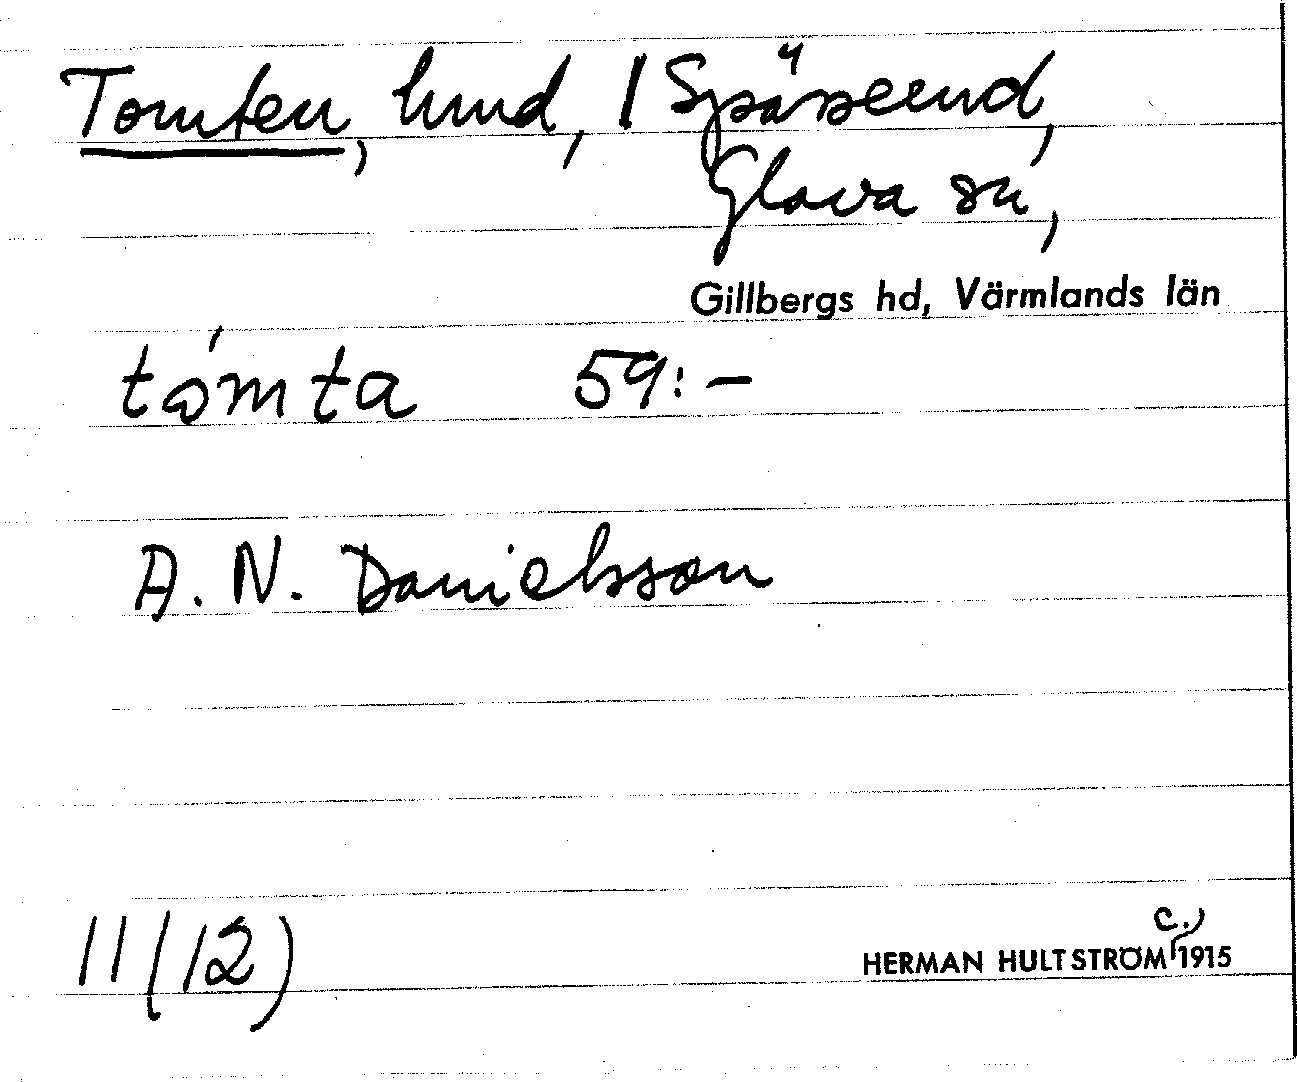 Tomten, hmd, / Spässerud,
Glava sn,
Gillbergs hd, Värmlands län
tómta 59:-
A. N. Danielsson
11(12)
HERMAN HULTSTRÖM c.) 1915